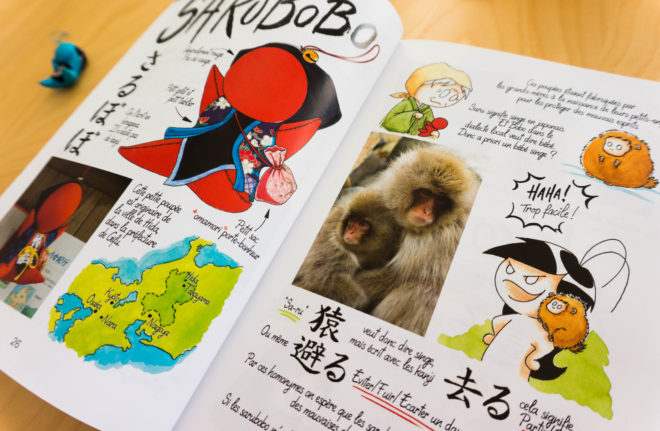 SARUBOBO
さるぼぼ
Petit gilet et
petit tablier
Cette petite poupée
est originaire de
la ville de Hida
dans la préfecture
de Gifu.
Petit sac
"omamori" porte-bonheur
Hida
Takayama
Kyōto
Osaka
Nara
Nagoya
26
Ces poupées étaient fabriquées par
les grands-mères à la naissance de leurs petits-en
pour les protéger des mauvais esprits.
Saru signifie singe en japonais.
Et Bobo dans le
dialecte local veut dire bébé.
Donc a priori un bébé singe ?
HAHA!
Trop facile !
"Sa-ru"
猿
veut donc dire singe,
mais écrit avec les kanji
Ou même
避る
Eviter/Fuir/Ecarter un da
去る
cela signifie
Parti
Par ces homonymes on espère que les sarub
des mauvaises
Si les sarubobo n'